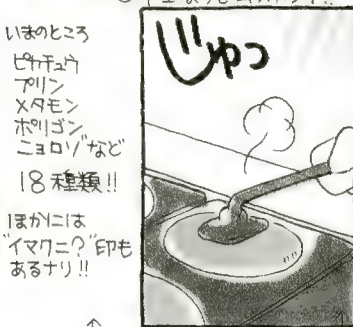 じゅっ
いまのところ
ピカチュウ
プリン
メタモン
ポリゴン
ニョロゾなど
18種類!!
ほかには
"イマクニ?"印も
あるナリ!!